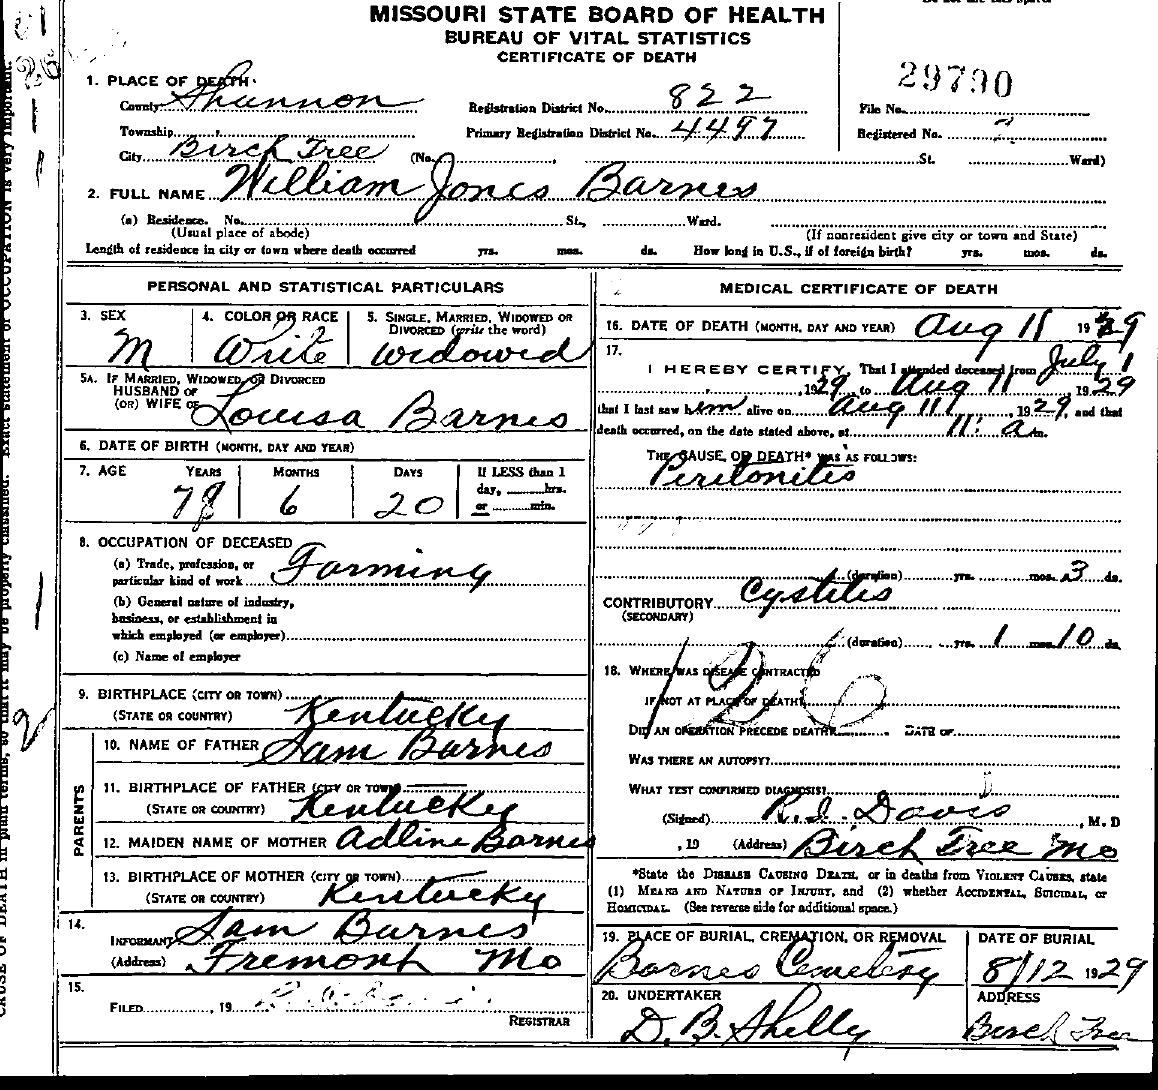 MISSOURI STATE BOARD OF HEALTH
BUREAU OF VITAL STATISTICS
CERTIFICATE OF DEATH
1. PLACE OF DEATH
County Shannon Registration District No. 822 File No. 29790
Township Primary Registration District No. 4497 Registered No.
City Birch Tree (No. , St. Ward)
2. FULL NAME William Jones Barnes
(a) Residence. No. St., Ward.
(Usual place of abode) (If nonresident give city or town and State)
Length of residence in city or town where death occurred yrs. mos. ds. How long in U.S., if of foreign birth? yrs. mos. ds.
PERSONAL AND STATISTICAL PARTICULARS
3. SEX 4. COLOR OR RACE 5. SINGLE, MARRIED, WIDOWED OR
DIVORCED (write the word)
M Write Widowed
5A. IF MARRIED, WIDOWED, OR DIVORCED
HUSBAND OF
(OR) WIFE OF Louisa Barnes
6. DATE OF BIRTH (MONTH, DAY AND YEAR)
7. AGE YEARS MONTHS DAYS If LESS than 1
day, hrs.
or min.
78 6 20
8. OCCUPATION OF DECEASED
(a) Trade, profession, or
particular kind of work Farming
(b) General nature of industry,
business, or establishment in
which employed (or employer)
(c) Name of employer
9. BIRTHPLACE (CITY OR TOWN)
(STATE OR COUNTRY) Kentucky
PARENTS
10. NAME OF FATHER Sam Barnes
11. BIRTHPLACE OF FATHER (CITY OR TOWN)
(STATE OR COUNTRY) Kentucky
12. MAIDEN NAME OF MOTHER Adline Barnes
13. BIRTHPLACE OF MOTHER (CITY OR TOWN)
(STATE OR COUNTRY) Kentucky
14.
INFORMANT Sam Barnes
(Address) Fremont Mo
15.
FILED , 19
REGISTRAR
MEDICAL CERTIFICATE OF DEATH
16. DATE OF DEATH (MONTH, DAY AND YEAR) Aug 11 1929
17.
I HEREBY CERTIFY, That I attended deceased from July 1
, 1929 to Aug 11 , 1929
that I last saw him alive on Aug 11 , 1929, and that
death occurred, on the date stated above, at 11: a m.
THE CAUSE OF DEATH* WAS AS FOLLOWS:
Peritonitis
(duration) yrs. mos. 3 ds.
CONTRIBUTORY Cystitis
(SECONDARY)
(duration) yrs. 1 mos. 10 ds.
126
18. WHERE WAS DISEASE CONTRACTED
IF NOT AT PLACE OF DEATH?
DID AN OPERATION PRECEDE DEATH? DATE OF
WAS THERE AN AUTOPSY?
WHAT TEST CONFIRMED DIAGNOSIS?
(Signed) R.I. Davis , M. D
, 19 (Address) Birch Tree Mo
*State the DISEASE CAUSING DEATH, or in deaths from VIOLENT CAUSES, state
(1) MEANS AND NATURE OF INJURY, and (2) whether ACCIDENTAL, SUICIDAL, or
HOMICIDAL. (See reverse side for additional space.)
19. PLACE OF BURIAL, CREMATION, OR REMOVAL DATE OF BURIAL
Barnes Cemetery 8/12 1929
20. UNDERTAKER ADDRESS
D. B. Shelly Birch Tree